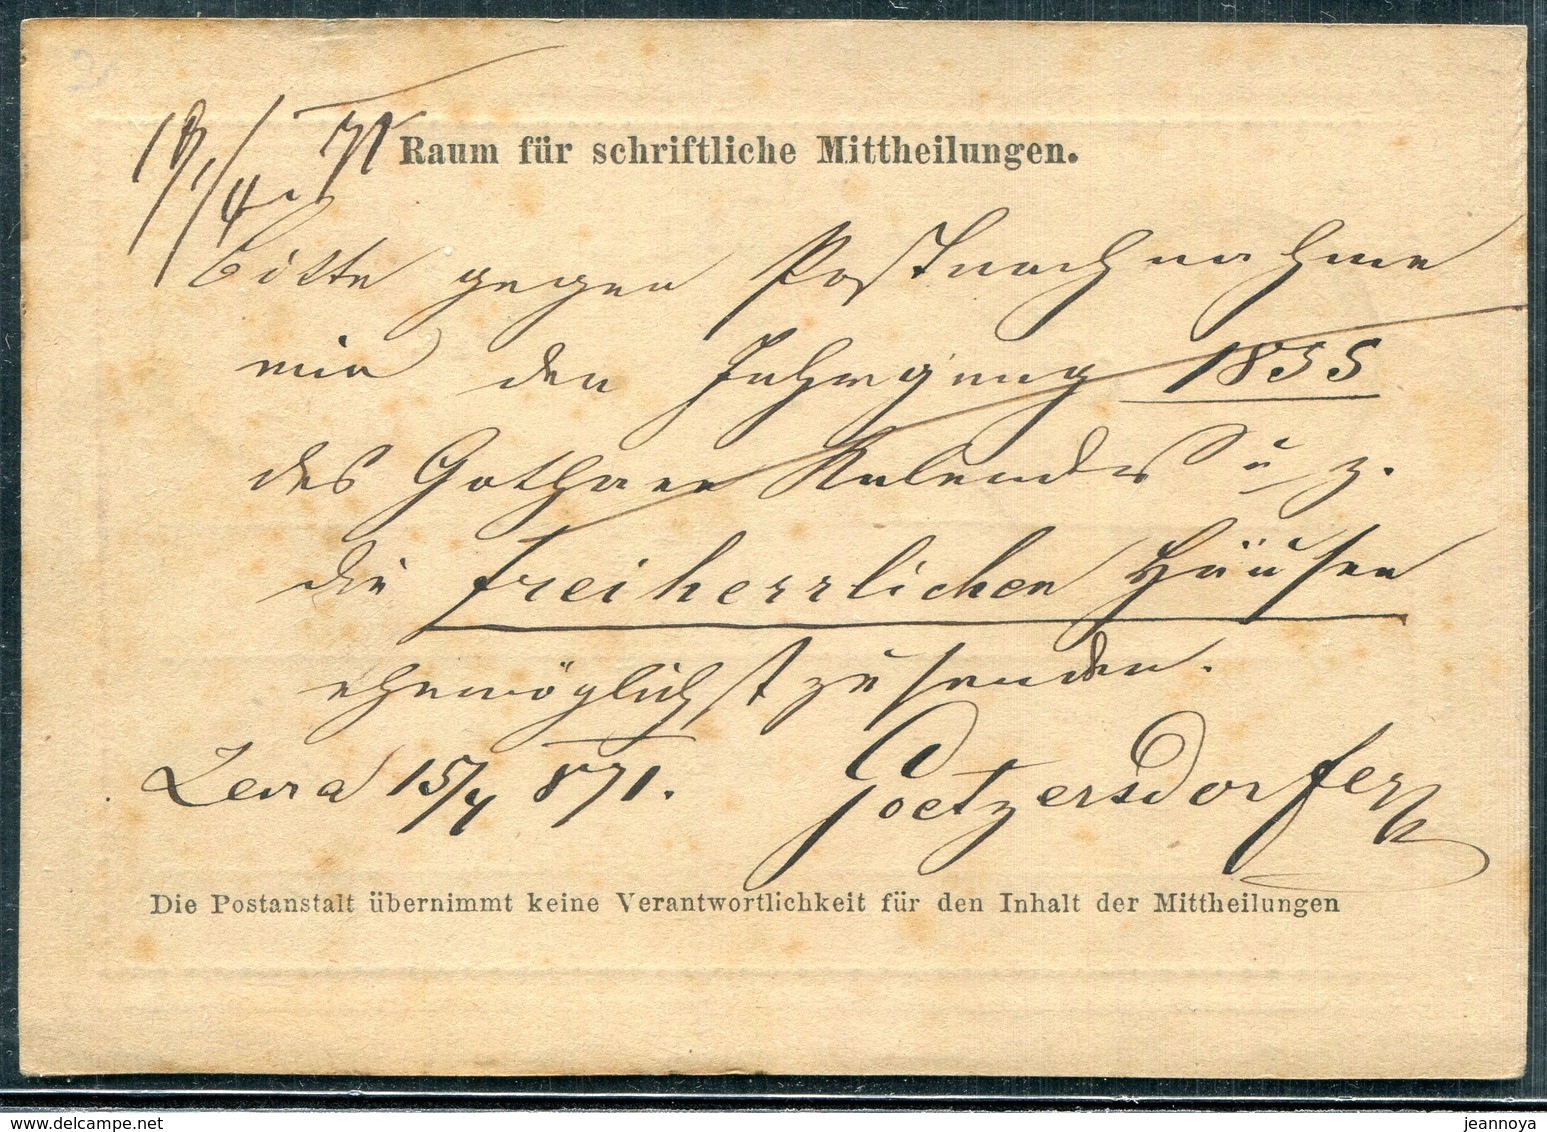 19/4 71
Raum für schriftliche Mittheilungen.
Bitte gegen Postnachnahme
mir den Jahrgang 1855
des Gothaer Kalenders u. z.
die freiherrlichen Häuser
ehemöglichst zusenden.
15/4 871. Goetzersdorfer
Die Postanstalt übernimmt keine Verantwortlichkeit für den Inhalt der Mittheilungen
delcampe.net
jeannoya